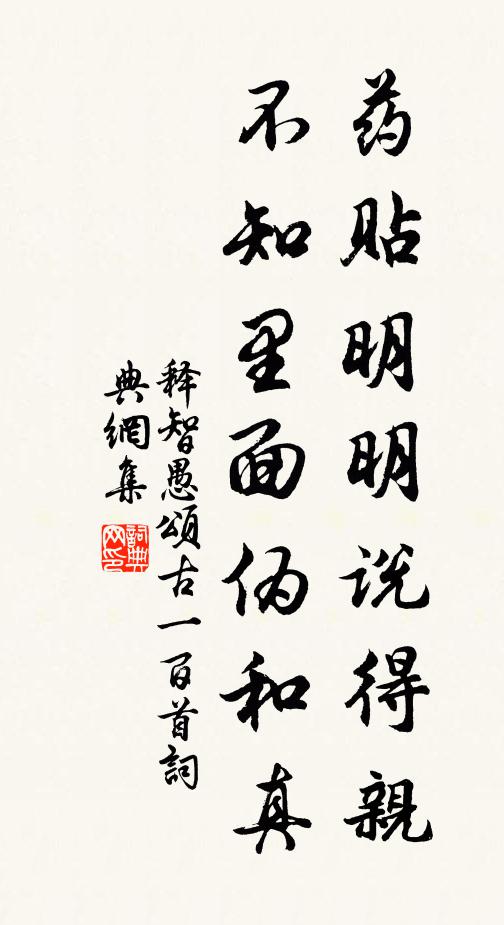 药贴明明说得親
不知里面伪和真
释智愚頌古一百首詞
典網集
詞典网印